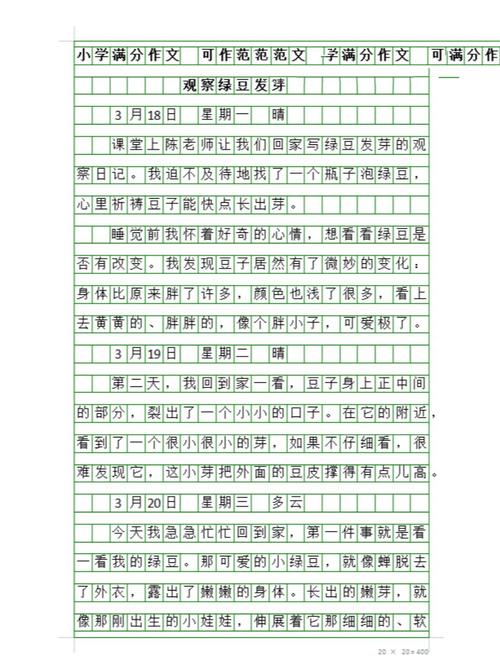 小学满分作文 可作范范范文 学满分作文 可满分作
观察绿豆发芽
3月18日 星期一 晴
课堂上陈老师让我们回家写绿豆发芽的观
察日记。我迫不及待地找了一个瓶子泡绿豆，
心里祈祷豆子能快点长出芽。
睡觉前我怀着好奇的心情，想看看绿豆是
否有改变。我发现豆子居然有了微妙的变化：
身体比原来胖了许多，颜色也浅了很多，看上
去黄黄的、胖胖的，像个胖小子，可爱极了。
3月19日 星期二 晴
第二天，我回到家一看，豆子身上正中间
的部分，裂出了一个小小的口子。在它的附近，
看到了一个很小很小的芽，如果不仔细看，很
难发现它，这小芽把外面的豆皮撑得有点儿高。
3月20日 星期三 多云
今天我急急忙忙回到家，第一件事就是看
一看我的绿豆。那可爱的小绿豆，就像蝉脱去
了外衣，露出了嫩嫩的身体。长出的嫩芽，就
像那刚出生的小娃娃，伸展着它那细细的、软
20 × 20=400